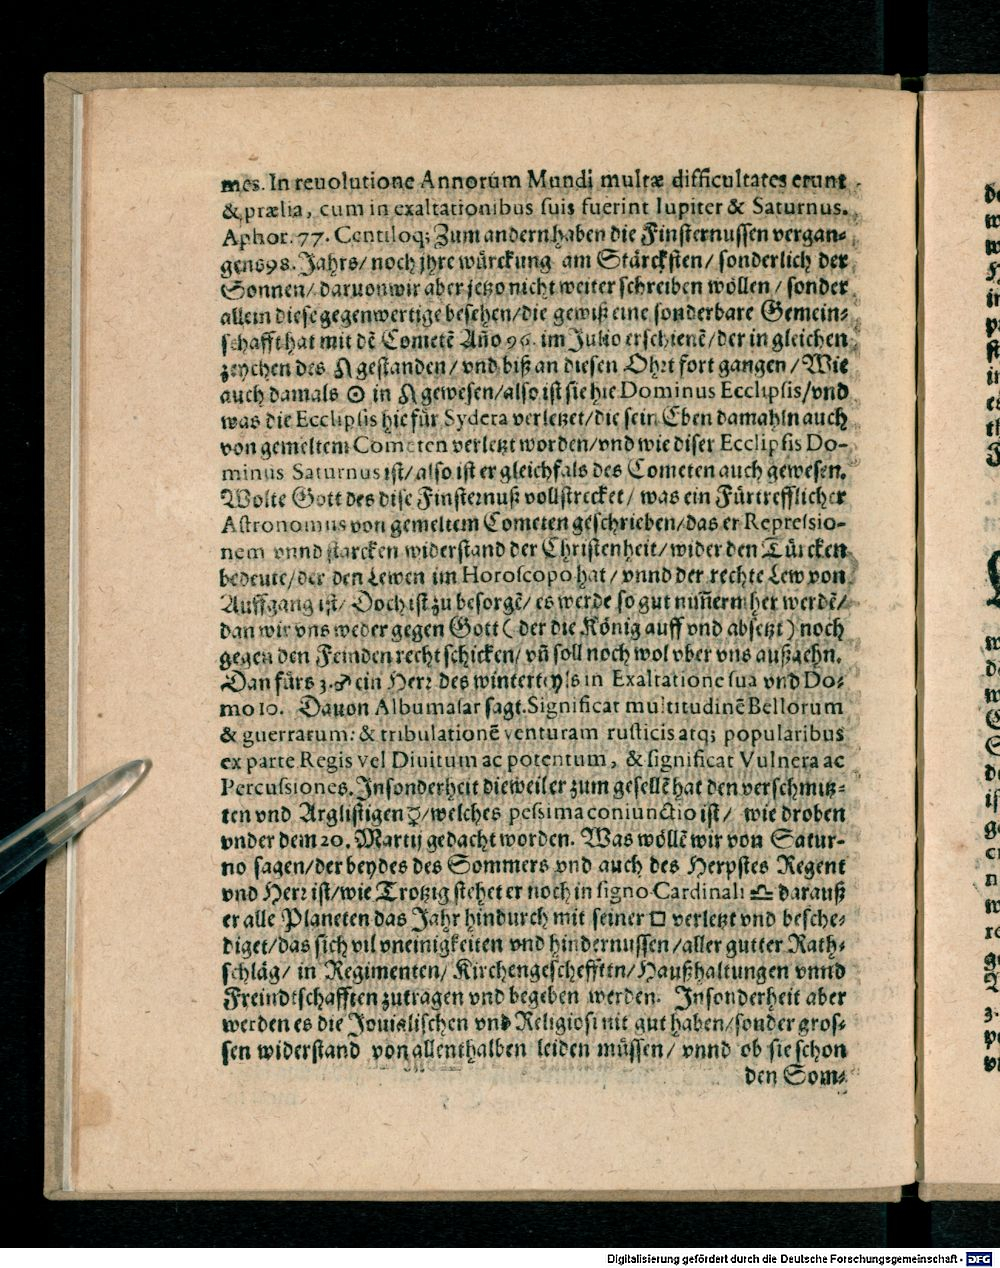 mes. In reuolutione Annorum Mundi multæ difficultates erunt
& prælia, cum in exaltationibus suis fuerint Iupiter & Saturnus.
Aphor. 77. Centiloq; Zum andern haben die Finsternussen vergan-
gens 98. Jahrs/ noch jhre würckung am Stärcksten/ sonderlich der
Sonnen/ daruon wir aber jetzo nicht weiter schreiben wöllen/ sonder
allein diese gegenwertige besehen/ die gewiß eine sonderbare Gemein-
schafft hat mit dē Cometē Año 96. im Julio erschienē/ der in gleichen
zeychen des ♌ gestanden/ vnd biß an diesen Ohrt fort gangen/ Wie
auch damals ☉ in ♌ gewesen/ also ist sie hie Dominus Ecclipsis/ vnd
was die Ecclipsis hie für Sydera verletzet/ die sein Eben damahln auch
von gemeltem Cometen verletzt worden/ vnd wie diser Ecclipsis Do-
minus Saturnus ist/ also ist er gleichfals des Cometen auch gewesen.
Wolte Gott des dise Finsternuß vollstrecket/ was ein Fürtrefflicher
Astronomus von gemeltem Cometen geschrieben/ das er Repressio-
nem vnnd starcken widerstand der Christenheit/ wider den Türcken
bedeute/ der den Lewen im Horoscopo hat/ vnnd der rechte Lew von
Auffgang ist/ Doch ist zu besorgē/ es werde so gut nim̃ermher werdē/
dan wir vns weder gegen Gott ( der die König auff vnd absetzt ) noch
gegen den Feinden recht schicken/ vñ soll noch wol vber vns außgehn.
Dan fürs 3. ♂ ein Herr des winterteyls in Exaltatione sua vnd Do-
mo 10. Dauon Albumasar sagt. Significat multitudinē Bellorum
& guerrarum: & tribulationē venturam rusticis atq; popularibus
ex parte Regis vel Diuitum ac potentum, & significat Vulnera ac
Percussiones. Insonderheit dieweil er zum gesellē hat den verschmitz-
ten vnd Arglistigen ☿/ welches pessima coniunctio ist/ wie droben
vnder dem 20. Martij gedacht worden. Was wöllē wir von Satur-
no sagen/ der beydes des Sommers vnd auch des Herpstes Regent
vnd Herr ist/ wie Trotzig stehet er noch in signo Cardinali ♎ darauß
er alle Planeten das Jahr hindurch mit seiner □ verletzt vnd besche-
diget/ das sich vil vneinigkeiten vnd hindernussen/ aller gutter Rath-
schläg/ in Regimenten/ Kirchengescheffttn/ Haußhaltungen vnnd
Freindtschafften zutragen vnd begeben werden. Insonderheit aber
werden es die Jouialischen vnd Religiosi nit gut haben/ sonder gros-
sen widerstand von allenthalben leiden müssen/ vnnd ob sie schon
den Som-
Digitalisierung gefördert durch die Deutsche Forschungsgemeinschaft - DFG